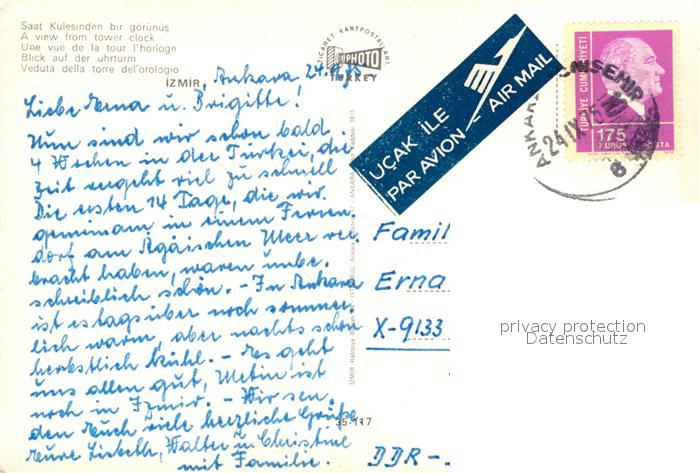 Saat Kulesinden bir görünüs
A view from tower clock
Une vue de la tour l'horloge
Blick auf der uhrturm
Veduta della torre del'orologio
İZMİR,
TİCARET KARTPOSTALLARI
PHOTO
TURKEY
UÇAK İLE
PAR AVION - AIR MAIL
TÜRKİYE CUMHURİYETİ
175
KURUŞ POSTA
ANKARA YENİŞEHİR
24.IX.75
Ankara 24.9.75
Liebe Erna u. Brigitte!
Nun sind wir schon bald
4 Wochen in der Türkei, die
Zeit vergeht viel zu schnell
Die ersten 14 Tage, die wir
gemeinsam in einem Ferien
dorf am Ägäischen Meer ver
bracht haben, waren unbe
schreiblich schön. - In Ankara
ist es tagsüber noch sommer
lich warm, aber nachts schon
herbstlich kühl. - Es geht
uns allen gut, Metin ist
noch in Izmir. - Wir sen
den Euch viele herzliche Grüße
Eure Lisbeth, Walter u. Christine
mit Familie.
35-117
Famil
Erna
X-9133
DDR -
privacy protection
Datenschutz